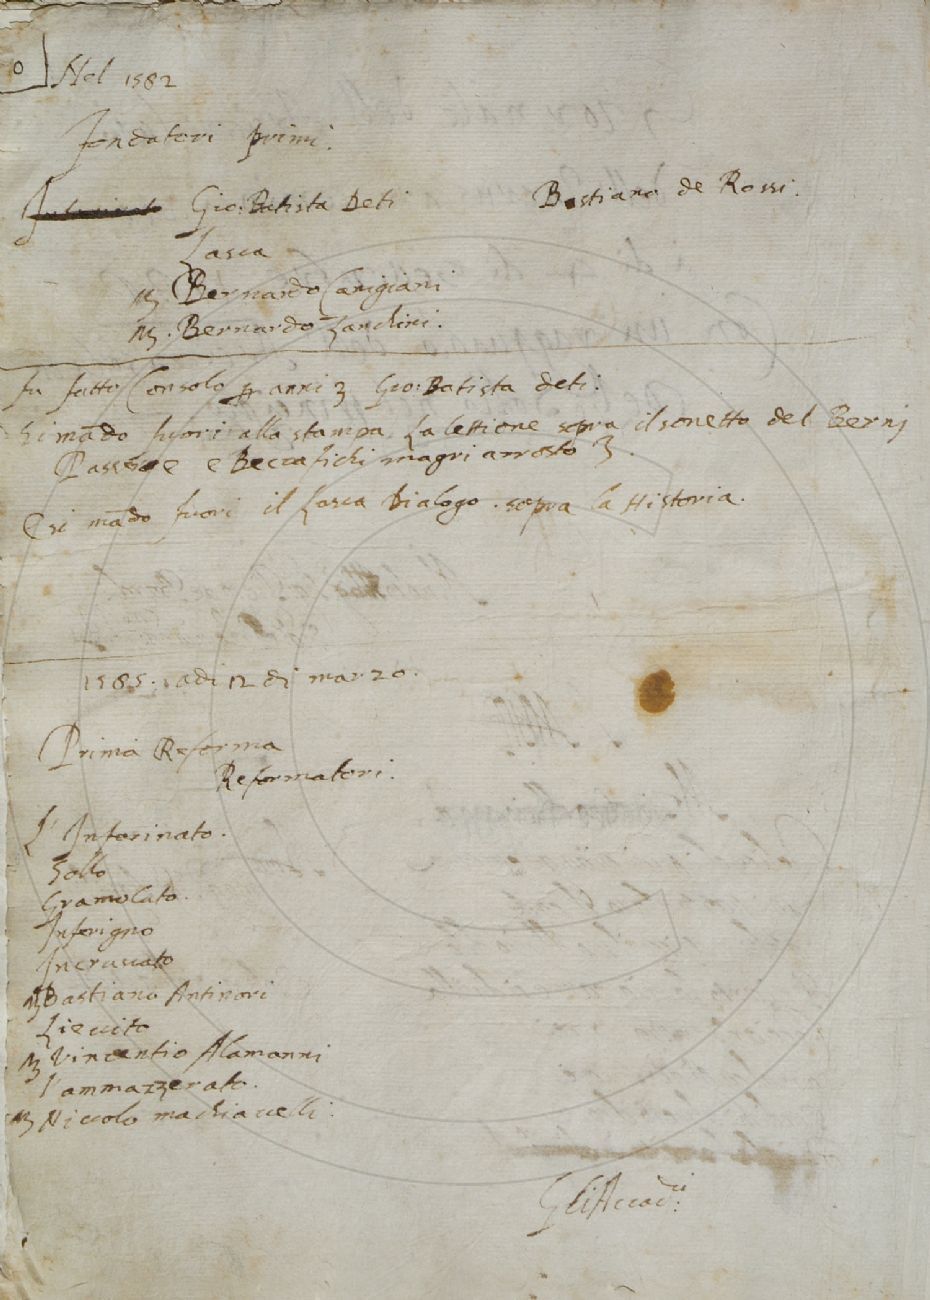 Nel 1582
Fondatori primi.
Gio: Batista Deti
Bastiano de Rossi.
Lasca
Bernardo Canigiani
Bernardo Zanchini.
fu fatto Consolo p anni 3 Gio: Batista deti.
si mādo fuori alla stampa. La lettione sopra il sonetto del Bernj
Passere e Beccafichi magri arrosto
E si mādo fuori il Lasca Dialogo. sopra la Historia.
1585. adi 12 di marzo.
Prima Reforma
Reformatori.
L'Inferinato.
Sollo
Gramolato.
Inferigno
Incruscato
Bastiano Antinori
Lievito
Vincentio Alamanni
l'ammazzerato.
Niccolo machiavelli:
Gli Accad:ci